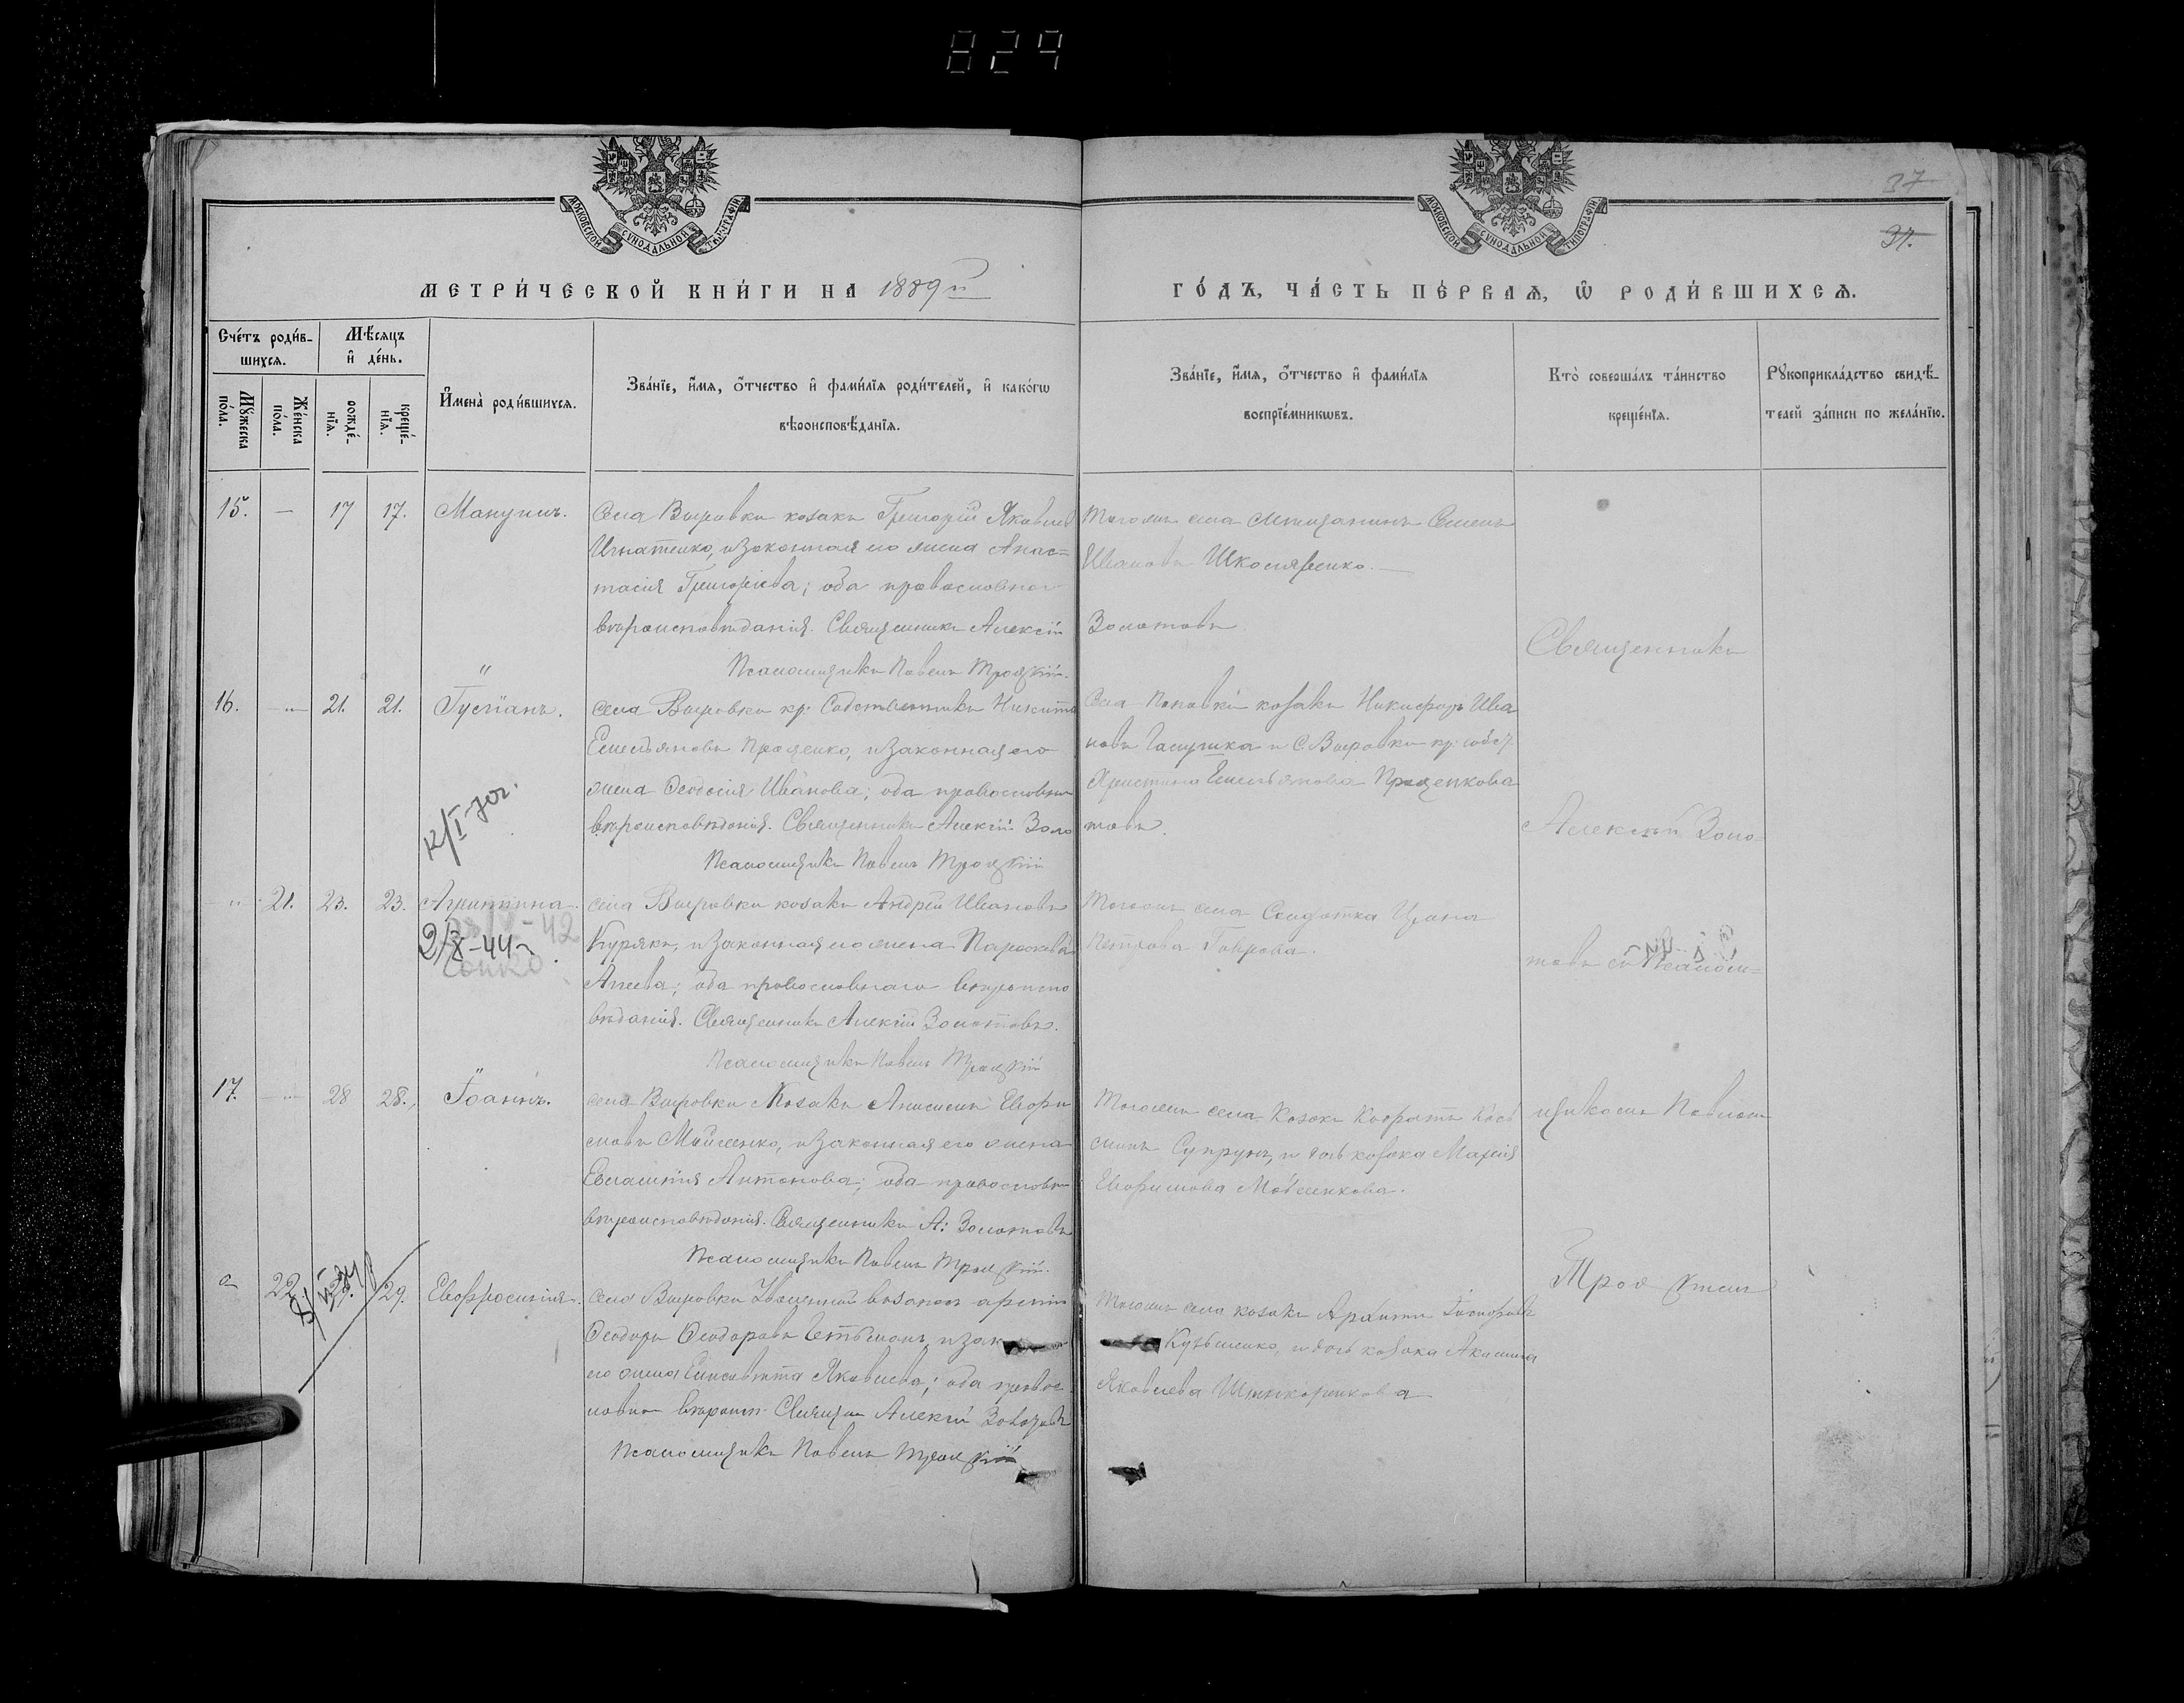 829
МОСКОВСКОЙ СѴНОДАЛЬНОЙ ТИПОГРАФІИ
МОСКОВСКОЙ СѴНОДАЛЬНОЙ ТИПОГРАФІИ
37
37.
МЕТРИ́ЧЕСКОЙ КНИ́ГИ НА 1889й
ГО́ДЪ, ЧА́СТЬ ПЕ́РВАѦ, Ѡ РОДИ́ВШИХСѦ.
Сче́тъ роди́в-
шихсѧ.
Мѣ́сѧцъ
и҆ де́нь.
Мꙋ́жеска по́ла.
Же́нска по́ла.
рожде́-нїѧ.
креще́-нїѧ.
И҆мена̀ роди́вшихсѧ.
Зва́нїе, и҆́мѧ, ѻ҆́тчество и҆ фами́лїѧ роди́телей, и҆ како́гѡ
вѣроисповѣ́данїѧ.
Зва́нїе, и҆́мѧ, ѻ҆́тчество и҆ фами́лїѧ
воспрїе́мникѡвъ.
Кто̀ соверша́лъ та́инство
креще́нїѧ.
Рꙋкоприкла́дство свидѣ́-
телей за́писи по жела́нїю.
15. — 17 17. Мануилъ.
Села Вировки козакъ Григорій Яковлев
Игнатенко, и законная его жена Анас=
тасія Григоріева; оба православнаго
вѣроисповѣданія. Священникъ Алексій
Псаломщикъ Павелъ Троцкій.
Тогожъ села мѣщанинъ Семенъ
Ивановъ Школяренко.
Золотовъ
16. 21. 21. Густанъ.
села Вировки кр: Собственникъ Никита
Емельяновъ Проценко, и законная его
жена Ѳеодосія Иванова; оба православн
вѣроисповѣданія. Священникъ Алексій Золо
Псаломщикъ Павелъ Троцкій
Села Поповки козакъ Никифоръ Ива
новъ и С. Вировки кр: собст
Христина Емельянова Проценкова
товъ.
21. 23. 23. Агриппина.
2/X-44г
села Вировки козакъ Андрей Ивановъ
Куряка, и законная его жена Параскева
оба православнаго вѣроиспо
вѣданія. Священникъ Алексій Золотовъ.
Псаломщикъ Павелъ Троцкій
Тогожъ села Солдатка Ирина
Петрова
17. 28 28. Іоаннъ.
села Вировки Козакъ Анисимъ Евфи
мовъ Мойсенко, и законная его жена
Евлампія Антонова; оба православн
вѣроисповѣданія. Священникъ А: Золотовъ
Псаломщикъ Павелъ Троцкій.
Тогожъ села Козакъ Кодратъ
Супрунъ, и дочь козака Марія
Евфимова Мойсенкова.
22. 29. Евфросинія.
Села Вировки козакъ
Ѳеодоръ Ѳеодоровъ Гетьманъ, и зак
его жена Елисавета Яковлева; оба правос
лавнаго вѣроисп. Священ Алексій Золотовъ
Псаломщикъ Павелъ Троцкій
Тогожъ села козакъ
Кузьменко, и дочь козака Акилина
Яковлева
Священникъ
Алексій Золо=
товъ съ Псалом=
щикомъ Павломъ
Троцкимъ